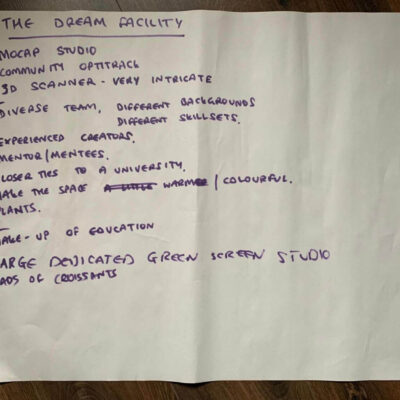 THE DREAM FACILITY
MOCAP STUDIO
COMMUNITY OPTITRACK
3D SCANNER - VERY INTRICATE
DIVERSE TEAM, DIFFERENT BACKGROUNDS
DIFFERENT SKILLSETS.
EXPERIENCED CREATORS.
MENTOR/MENTEES.
LOSER TIES TO A UNIVERSITY.
MAKE THE SPACE A LITTLE WARMER / COLOURFUL.
PLANTS.
AKE-UP OF EDUCATION
ARGE DEDICATED GREEN SCREEN STUDIO
ADS OF CROISSANTS